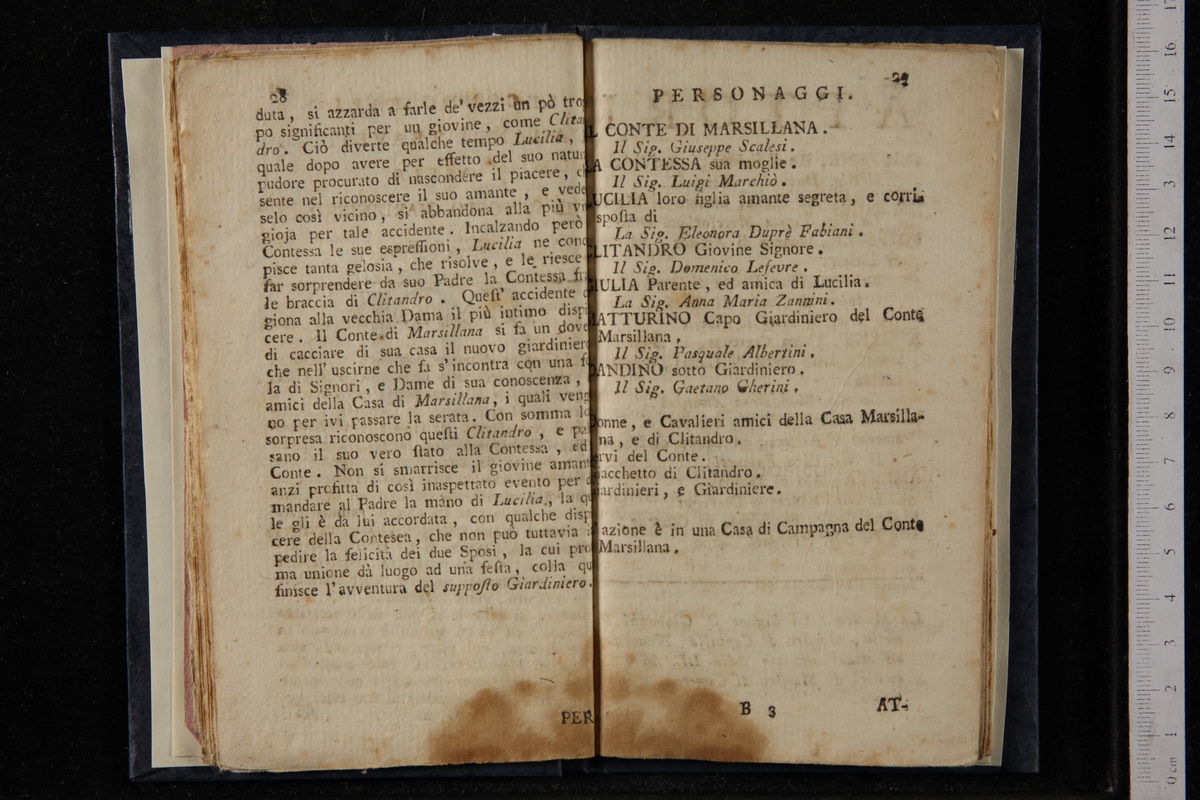 28
duta, si azzarda a farle de' vezzi un pò tro
po significanti per un giovine, come Clita
dro. Ciò diverte qualche tempo Lucilia,
quale dopo avere per effetto del suo natu
pudore procurato di nascondere il piacere, c
sente nel riconoscere il suo amante, e vede
selo così vicino, si abbandona alla più vi
gioja per tale accidente. Incalzando però
Contessa le sue espressioni, Lucilia ne conc
pisce tanta gelosia, che risolve, e le riesce
far sorprendere da suo Padre la Contessa fra
le braccia di Clitandro. Quest' accidente c
giona alla vecchia Dama il più intimo dispi
cere. Il Conte di Marsillana si fa un dove
di cacciare di sua casa il nuovo giardiniere
che nell' uscirne che fa s'incontra con una fo
la di Signori, e Dame di sua conoscenza,
amici della Casa di Marsillana, i quali veng
no per ivi passare la serata. Con somma lo
sorpresa riconoscono questi Clitandro, e pa
sano il suo vero stato alla Contessa, ed
Conte. Non si smarrisce il giovine amant
anzi profitta di così inaspettato evento per d
mandare al Padre la mano di Lucilia, la qu
le gli è da lui accordata, con qualche disp
cere della Contesea, che non può tuttavia i
pedire la felicità dei due Sposi, la cui pro
ma unione dà luogo ad una festa, colla qu
finisce l'avventura del supposto Giardiniero.
PER
29
PERSONAGGI.
IL CONTE DI MARSILLANA.
Il Sig. Giuseppe Scalesi.
LA CONTESSA sua moglie.
Il Sig. Luigi Marchiò.
LUCILIA loro figlia amante segreta, e corri-
sposta di
La Sig. Eleonora Duprè Fabiani.
CLITANDRO Giovine Signore.
Il Sig. Domenico Lefevre.
GIULIA Parente, ed amica di Lucilia.
La Sig. Anna Maria Zannini.
MATTURINO Capo Giardiniero del Conte
Marsillana,
Il Sig. Pasquale Albertini.
DANDINO sotto Giardiniero.
Il Sig. Gaetano Gherini.
Donne, e Cavalieri amici della Casa Marsilla-
na, e di Clitandro.
ervi del Conte.
acchetto di Clitandro.
iardinieri, e Giardiniere.
azione è in una Casa di Campagna del Conte
Marsillana.
B 3 AT-
0 cm 1 2 3 4 5 6 7 8 9 10 11 12 13 14 15 16 17